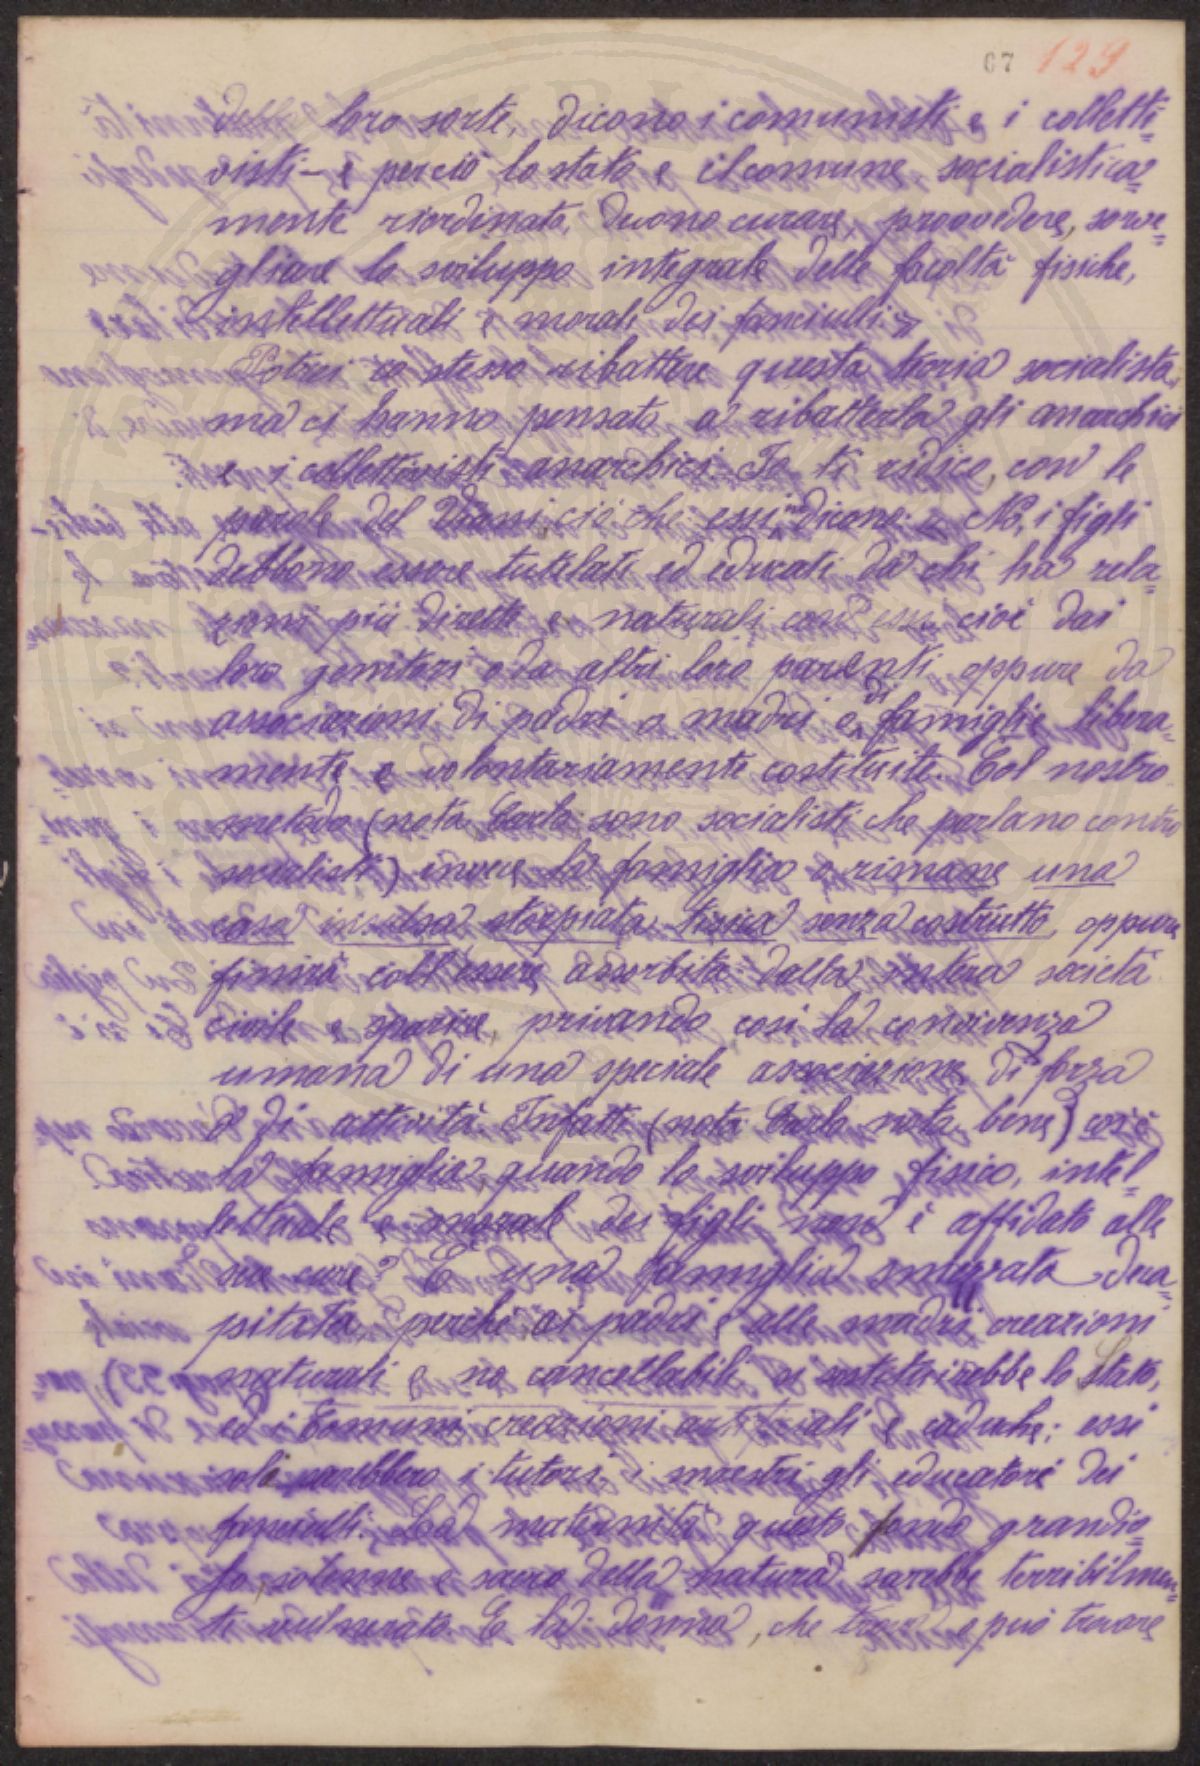 67 129
della loro sorte, dicono i comunisti e i colletti=
visti - e perciò lo stato e il comune socialistica=
mente riordinato, devono curare, provvedere, sorve=
gliare lo sviluppo integrale delle facoltà fisiche,
intellettuali e morali dei fanciulli. »
Potrei io stesso ribattere questa teoria socialista,
ma ci hanno pensato a ribatterla gli anarchici
e i collettivisti anarchici. Io ti ridico, con le
parole del ciò che essi dicono: « No, i figli
debbono essere tutelati ed educati da chi ha rela
zioni più dirette e naturali con essi cioè dai
loro genitori o da altri loro parenti oppure da
associazioni di padri o madri e di famiglie libera=
mente e volontariamente costituite. Col nostro
metodo (nota Carla: sono socialisti che parlano contro
socialisti) invece la famiglia o rimane una
cosa insulsa storpiata, tisica senza costrutto, oppure
finirà coll'essere assorbita dalla intera società
civile e sparire, privando così la convivenza
umana di una speciale associazione di forza
e di attività. Infatti (nota Carla nota bene) cos'è
la famiglia, quando lo sviluppo fisico, intel=
lettuale e morale dei figli non è affidato alle
sue cure? È una famiglia smezzata deca=
pitata, perchè ai padri e alle madri creazioni
naturali e no cancellabili si sostituirebbe lo Stato,
ed i Comuni creazioni artificiali e caduche: essi
soli sarebbero i tutori, i maestri gli educatori dei
fanciulli. La maternità questo grandio=
so, solenne e sacro della natura sarebbe terribilmen=
te vulnerato. E la donna, che trova e può trovare